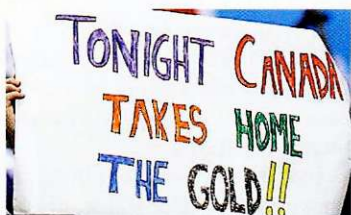 TONIGHT CANADA
TAKES HOME
THE GOLD!!